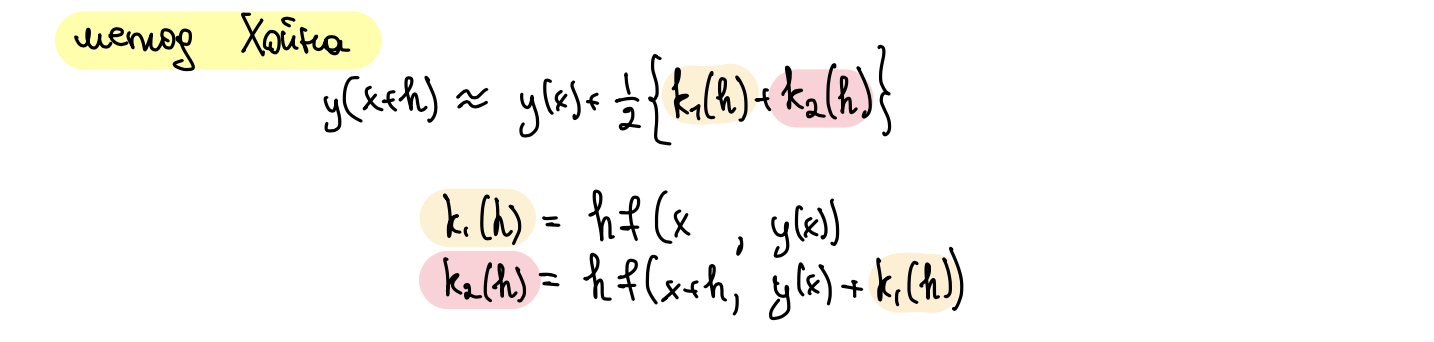 метод Хойна
y(x+h) ≈ y(x)+ 1/2 {k₁(h)+k₂(h)}
k₁(h) = hf(x , y(x))
k₂(h) = hf(x+h, y(x)+k₁(h))